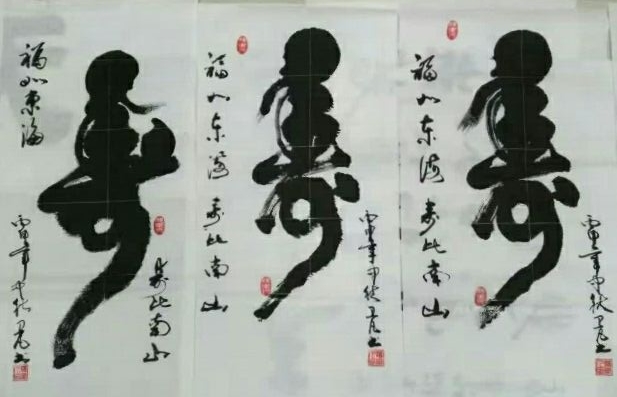 福如东海
寿
寿比南山
中秋
福如东海 寿比南山
寿
中秋
福如东海 寿比南山
寿
中秋